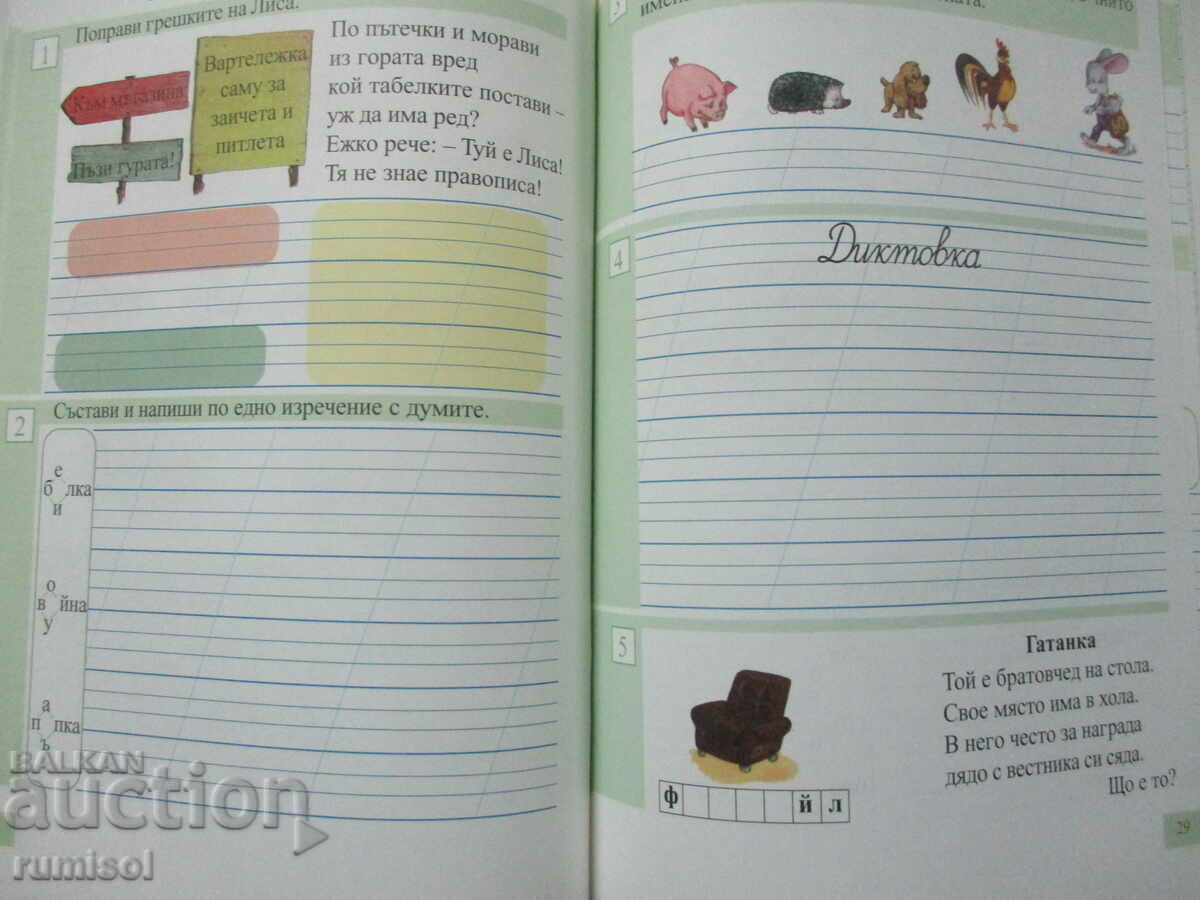 Поправи грешките на Лиса.
1
Към магазина
Пъзи гурата!
Вартележка
саму за
заичета и
питлета
По пътечки и морави
из гората вред
кой табелките постави –
уж да има ред?
Ежко рече: – Туй е Лиса!
Тя не знае правописа!
2
Състави и напиши по едно изречение с думите.
е
б лка
и
о
в йна
у
а
п пка
ъ
3
4
Диктовка
5
Гатанка
Той е братовчед на стола.
Свое място има в хола.
В него често за награда
дядо с вестника си сяда.
Що е то?
ф й л
29
BALKAN
auction
rumisol